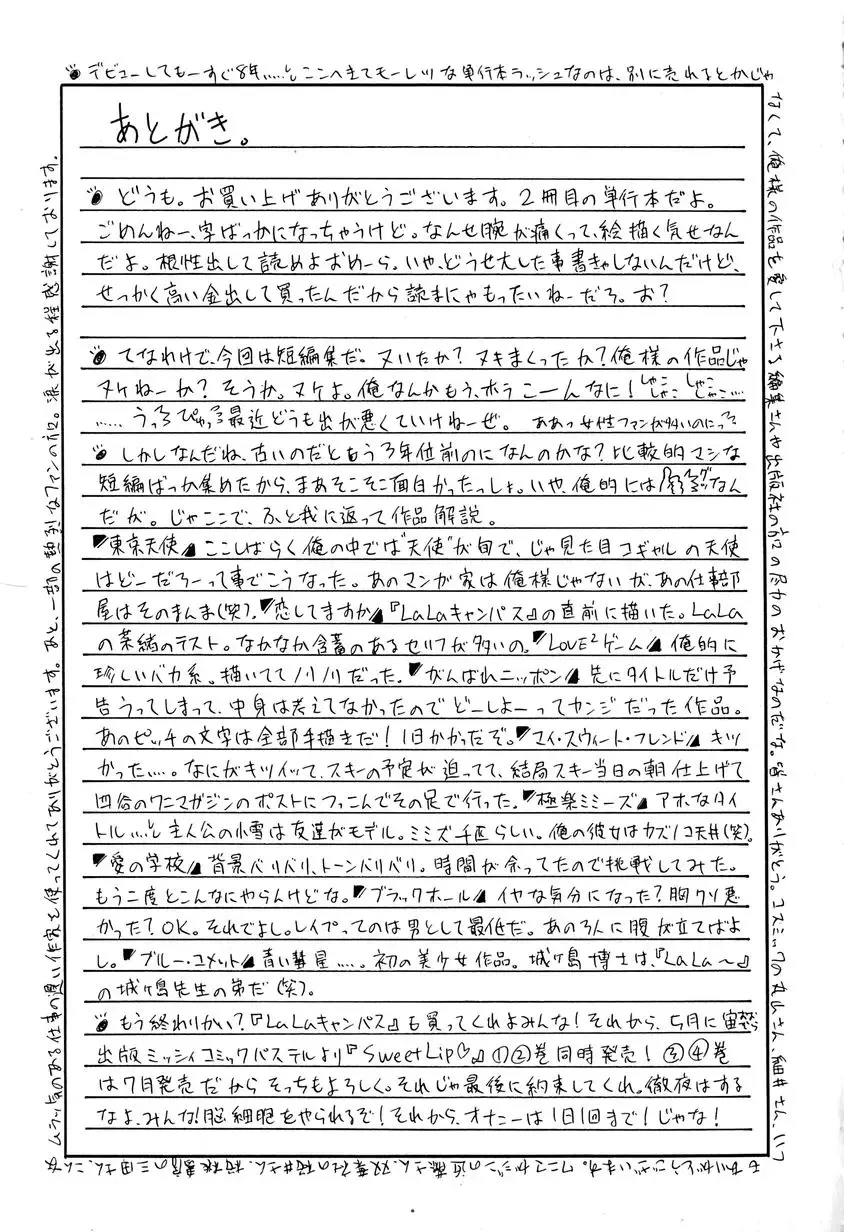 デビューしてもーすぐ8年……。ここへきてモーレツな単行本ラッシュなのは、別に売れるとかじゃ
なくて、俺様の作品を愛して下さる編集さんや出版社の方の尽力のおかげなのだな。皆さんありがとう。コスミックの丸山さん、細井さん、いつ
もありがとうございます。ワニマガジンの近藤さん、双葉社の桜井さん、桜桃書房の三田さん、こんな
ムラッ気のある仕事の遅い作家を使ってくれてありがとうございます。あと、一部の熱烈なファンの方に。涙が出る程感謝しております。
あとがき。
どうも。お買い上げありがとうございます。2冊目の単行本だよ。
ごめんねー、字ばっかになっちゃうけど。なんせ腕が痛くって、絵描く気せなん
だよ。根性出して読めよおめーら。いや、どうせ大した事書きゃしないんだけど、
せっかく高い金出して買ったんだから読まにゃもったいねーだろ。お?
てなわけで、今回は短編集だ。ヌいたか?ヌキまくったか?俺様の作品じゃ
ヌケねーか?そうか。ヌケよ。俺なんかもう、ホラこーんなに!しゃこしゃこしゃこしゃこ…
……うっろぴゅっろ最近どうも出が悪くていけねーぜ。ああっ女性ファンが多いのにっ
しかしなんだね、古いのだともう3年位前のになんのかな?比較的マシな
短編ばっか集めたから、まあそこそこ面白かったっしょ。いや、俺的には なん
だが。じゃここで、ふと我に返って作品解説。
「東京天使」ここしばらく俺の中では"天使"が旬で、じゃ見た目コギャルの天使
はどーだろーって事でこうなった。あのマンガ家は俺様じゃないが、あの仕事部
屋はそのまんま(笑)。「恋してますか」『LaLaキャンパス』の直前に描いた。LaLa
の菜緒のテスト。なかなか含蓄のあるセリフが多いの。「LOVE²ゲーム」俺的に
珍しいバカ系。描いててノリノリだった。「がんばれニッポン」先にタイトルだけ予
告うってしまって、中身は考えてなかったのでどーしよーってカンジだった作品。
あのピッチの文字は全部手描きだ!1日かかったぞ。「マイ・スウィート・フレンド」キツ
かった……。なにがキツイッて、スキーの予定が迫ってて、結局スキー当日の朝仕上げて
四谷のワニマガジンのポストにつっこんでその足で行った。「極楽ミミーズ」アホなタイ
トル……。主人公の小雪は友達がモデル。ミミズ千匹らしい。俺の彼女はカズノコ天井(笑)。
「愛の学校」背景バリバリ、トーンバリバリ。時間が余ってたので挑戦してみた。
もう二度とこんなにやらんけどな。「ブラックホール」イヤな気分になった?胸クソ悪
かった?OK。それでよし。レイプってのは男として最低だ。あの3人に腹が立てばよ
し。「ブルー・コメット」青い彗星……。初の美少女作品。城ヶ島博士は、『LaLa〜』
の城ヶ島先生の弟だ(笑)。
もう終わりかい?『LaLaキャンパス』も買ってくれよみんな!それから、5月に宙
出版ミッシィコミックパステルより『Sweet Lip♡』①②巻同時発売!③④巻
は7月発売だからそっちもよろしく。それじゃ最後に約束してくれ。徹夜はする
なよ、みんな!脳細胞をやられるぞ!それから、オナニーは1日1回まで!じゃな!